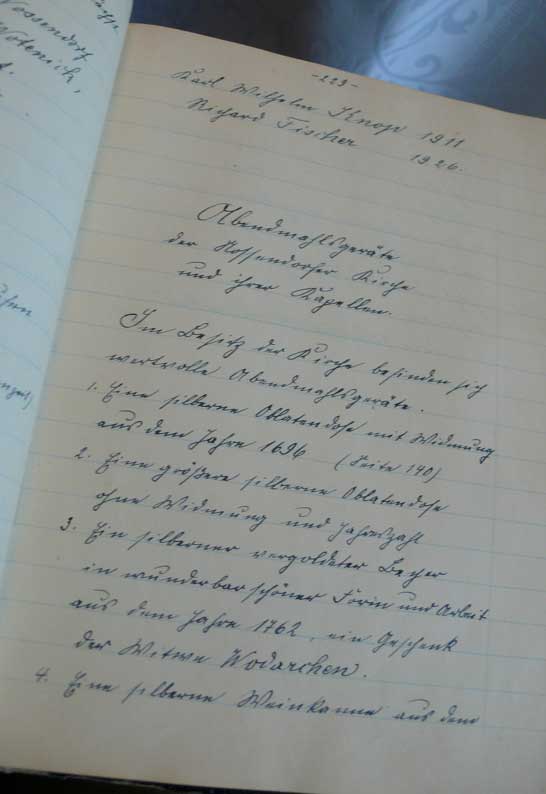 Nossendorf
Wotenick,
-223-
Karl Wilhelm Knop 1911
Richard Fischer 1926.
Abendmahlsgeräte
der Nossendorfer Kirche
und ihrer Kapellen.
Im Besitz der Kirche befinden sich
wertvolle Abendmahlsgeräte.
1. Eine silberne Oblatendose mit Widmung
aus dem Jahre 1696 (Seite 140)
2. Eine größere silberne Oblatendose
ohne Widmung und Jahreszahl
3. Ein silberner vergoldeter Becher
in wunderbar schöner Form und Arbeit
aus dem Jahre 1762, ein Geschenk
der Witwe Wodarchen.
4. Eine silberne Weinkanne aus dem